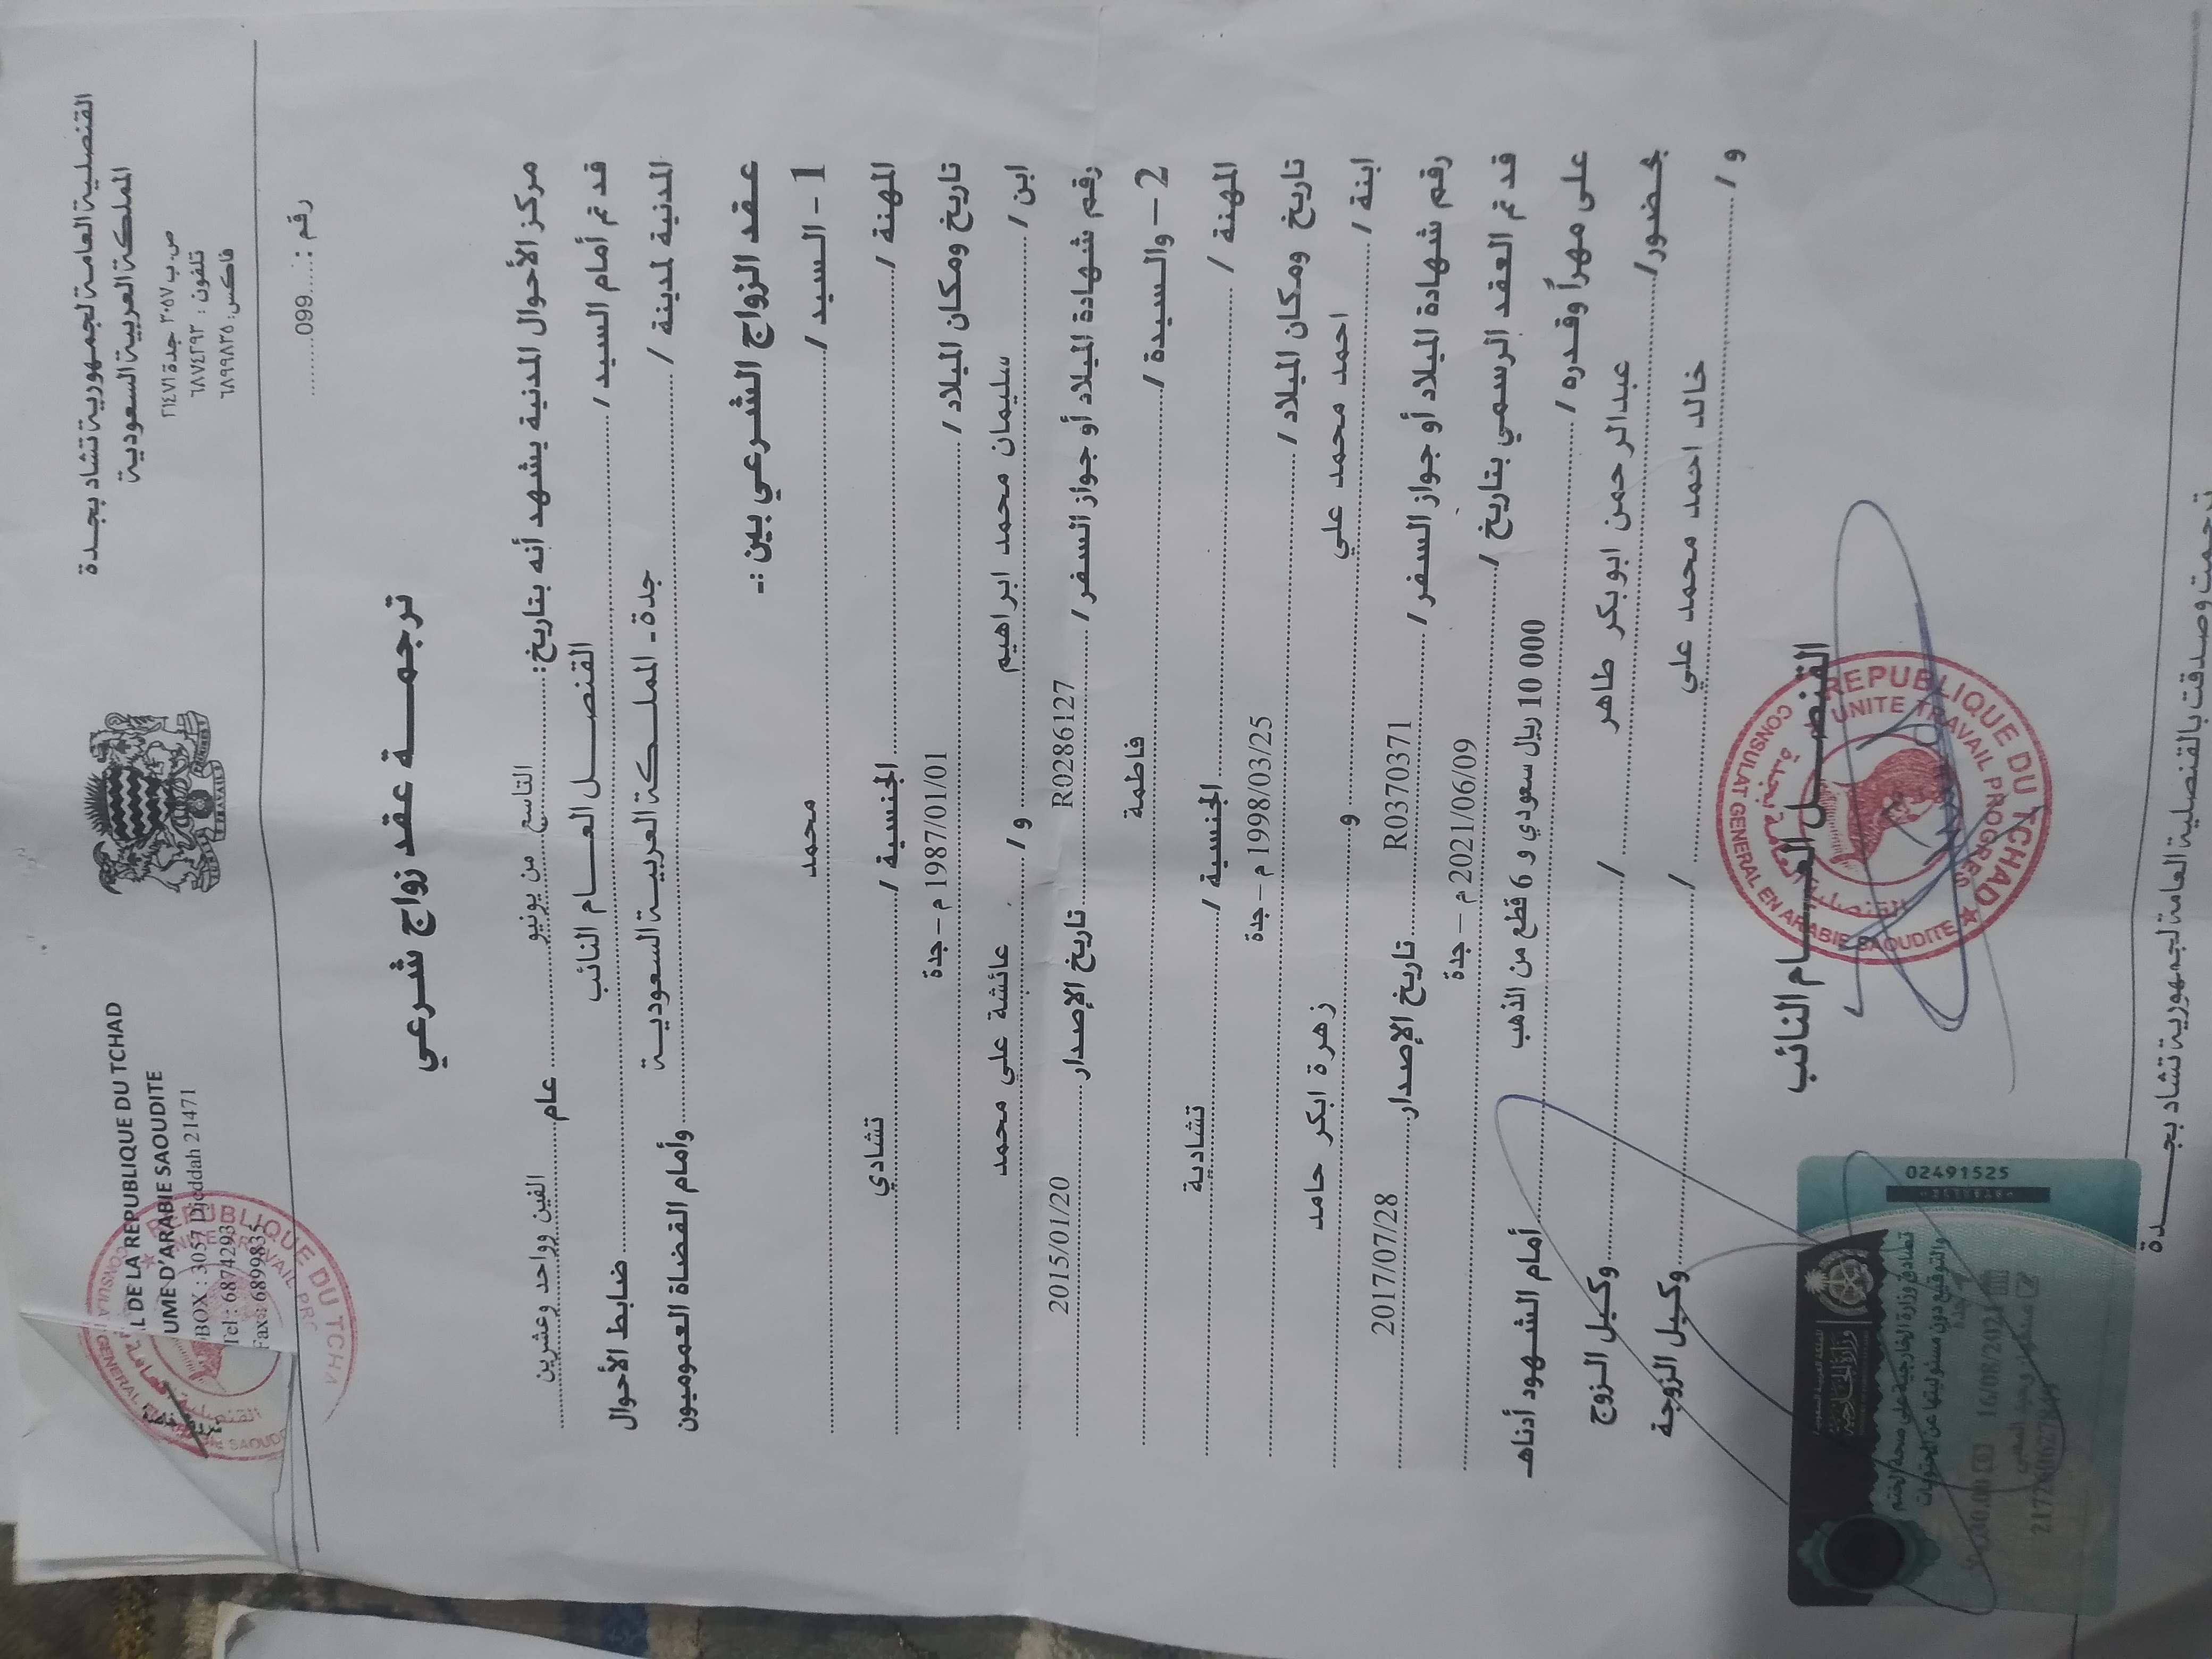 القنصلية العامة لجمهورية تشاد بجدة
المملكة العربية السعودية
ص.ب ٣٠٥٧ جدة ٢١٤٧١
تلفون : ٦٨٧٤٢٩٣
فاكس: ٦٨٩٩٨٣٥
L DE LA REPUBLIQUE DU TCHAD
UME D'ARABIE SAOUDITE
BOX : 3057 Djeddah 21471
Tel : 6874293
Fax : 6899835
رقم : .....099
ترجمــة عقد زواج شرعي
مركز الأحوال المدنية يشهد أنه بتاريخ: التاسع من يونيو عام الفين وواحد وعشرين
قد تم أمام السيد / القنصــل العــام النائب ضابط الأحوال
المدنية لمدينة / جدة - المملكة العربية السعودية وأمام القضاة العموميون
عقد الزواج الشرعي بين :-
1 - السيد / محمد
المهنة / الجنسية / تشادي
تاريخ ومكان الميلاد / 1987/01/01 م – جدة
ابن / سليمان محمد ابراهيم و / عائشة علي محمد
رقم شهادة الميلاد أو جواز السفر / R0286127 تاريخ الإصدار 2015/01/20
2 – والسيدة / فاطمة
المهنة / الجنسية / تشادية
تاريخ ومكان الميلاد / 1998/03/25 م – جدة
ابنة / احمد محمد علي و زهرة ابكر حامد
رقم شهادة الميلاد أو جواز السفر / R0370371 تاريخ الإصدار 2017/07/28
قد تم العقد الرسمي بتاريخ / 2021/06/09 م – جدة
على مهراً وقدره / 10 000 ريال سعودي و 6 قطع من الذهب أمام الشهود أدناه
بحضور / عبدالرحمن ابوبكر طاهر / وكيل الزوج
و / خالد احمد محمد علي / وكيل الزوجة
القنصــل العــام النائب
REPUBLIQUE DU TCHAD
UNITE TRAVAIL PROGRES
CONSULAT GENERAL EN ARABIE SAOUDITE
02491525
وزارة الخارجية
تصادق وزارة الخارجية على صحة الختم
والتوقيع دون مسئوليتها عن المحتويات
30.00 16/08/2021
تحت وصدقت بالقنصلية العامة لجمهورية تشاد بجـــدة